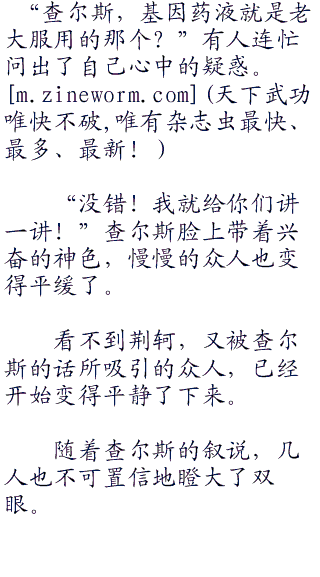 “查尔斯，基因药液就是老
大服用的那个？”有人连忙
问出了自己心中的疑惑。
[m.zineworm.com](天下武功
唯快不破,唯有杂志虫最快、
最多、最新！)
“没错！我就给你们讲
一讲！”查尔斯脸上带着兴
奋的神色，慢慢的众人也变
得平缓了。
看不到荆轲，又被查尔
斯的话所吸引的众人，已经
开始变得平静了下来。
随着查尔斯的叙说，几
人也不可置信地瞪大了双
眼。